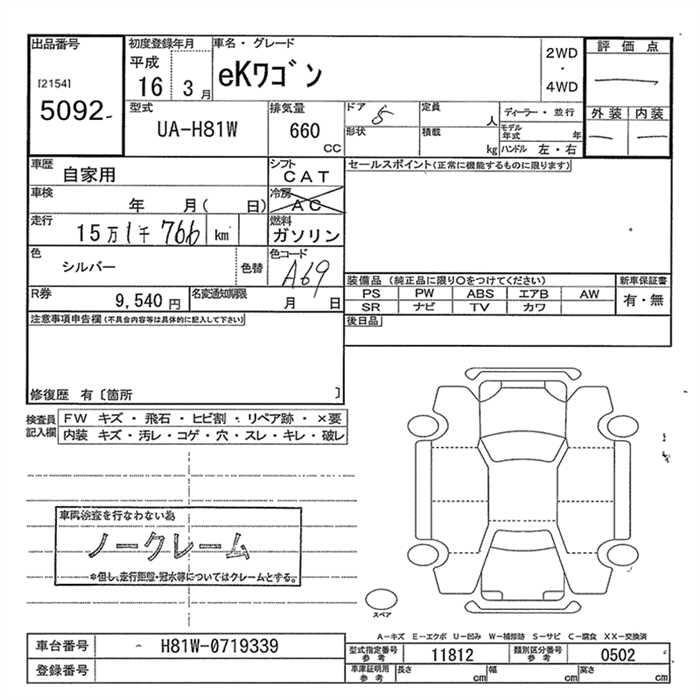 出品番号
[2154]
5092
初度登録年月
平成
16 3 月
車名・グレード
eKワゴン
2WD
・
4WD
評価点
外装 内装
型式
UA-H81W
排気量
660
CC
ドア 5
形状
定員 人
積載 kg
ディーラー・並行
モデル年式 年
ハンドル 左・右
車歴
自家用
シフト
CAT
セールスポイント(正常に機能するものに限ります)
車検
年 月( 日)
冷房
AC
走行
15万1千766 km
燃料
ガソリン
色
シルバー
色替
色コード
A69
R券
9,540 円
名変通知期限
月 日
装備品(純正品に限り○をつけてください)
新車保証書
PS PW ABS エアB AW
有・無
SR ナビ TV カワ
後日品
注意事項申告欄(不具合内容等は具体的に記入して下さい)
修復歴 有〔箇所 〕
検査員記入欄
FW キズ・飛石・ヒビ割・リペア跡・×要
内装 キズ・汚レ・コゲ・穴・スレ・キレ・破レ
車両検査を行なわない為
ノークレーム
※但し、走行距離・冠水等についてはクレームとする。
スペア
A-キズ E-エクボ U-凹み W-補修跡 S-サビ C-腐食 XX-交換済
車台番号
H81W-0719339
登録番号
型式指定番号参考
11812
類別区分番号参考
0502
車庫証明用参考
長さ cm 幅 cm 高さ cm